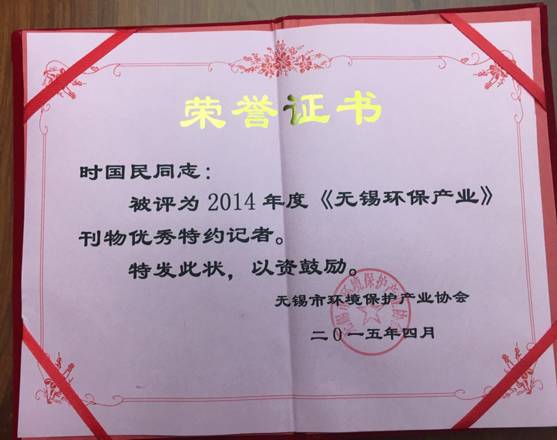 荣誉证书
时国民同志：
被评为2014年度《无锡环保产业》
刊物优秀特约记者。
特发此状，以资鼓励。
无锡市环境保护产业协会
二0一五年四月